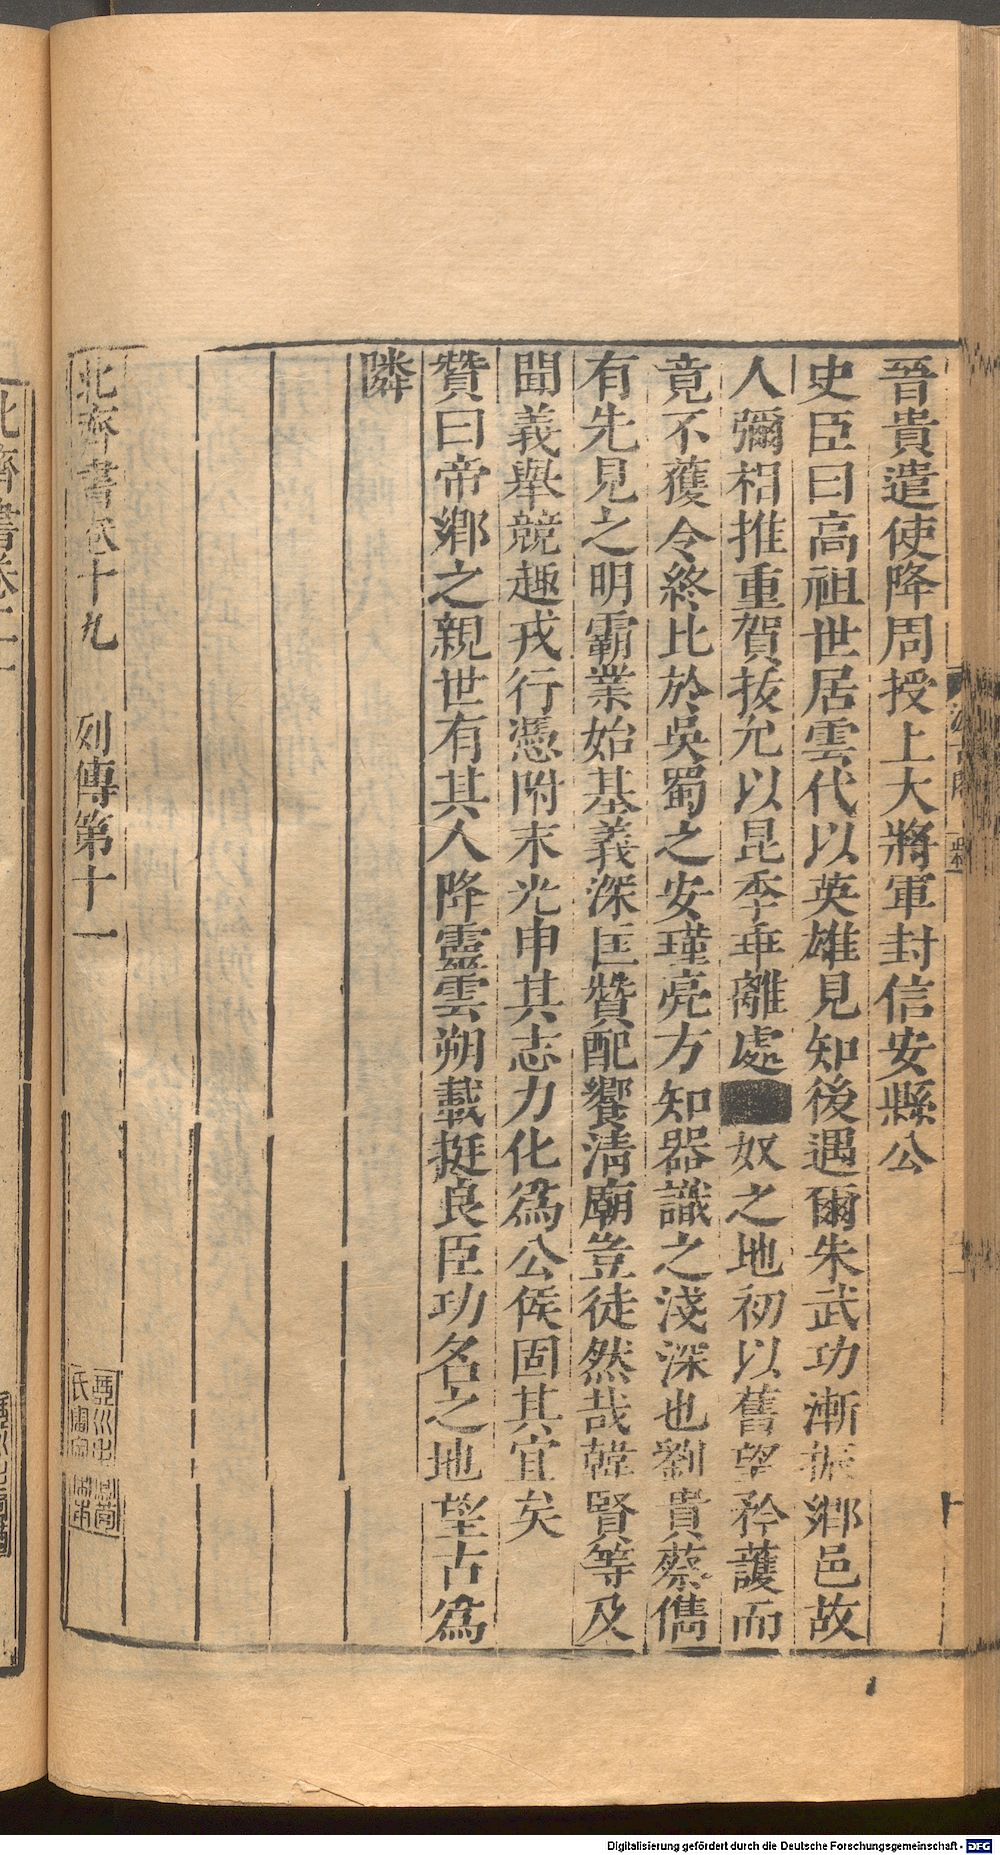 晉貴遣使降周授上大將軍封信安縣公
史臣曰高祖世居雲代以英雄見知後遇爾朱武功漸振鄉邑故
人彌相推重賀拔允以昆季乖離處奴之地初以舊望矜護而
竟不獲令終比於吳蜀之安瑾亮方知器識之淺深也劉貴蔡儁
有先見之明霸業始基義深匡贊配饗清廟豈徒然哉韓賢等及
聞義舉競趣戎行憑附末光申其志力化爲公侯固其宜矣
贊曰帝鄉之親世有其人降靈雲朔載挺良臣功名之地望古爲
隣
北齊書卷十九 列傳第十一
北齊書卷二十
Digitalisierung gefördert durch die Deutsche Forschungsgemeinschaft - DFG